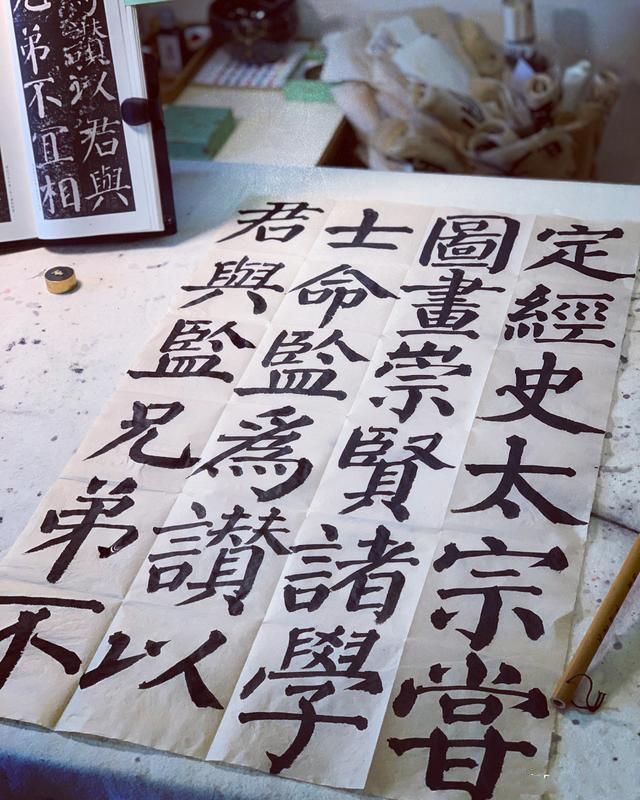 定經史太宗甞
圖畫崇賢諸學
士命監爲讃以
君與監兄弟不
讃以君與
兄弟不宜相